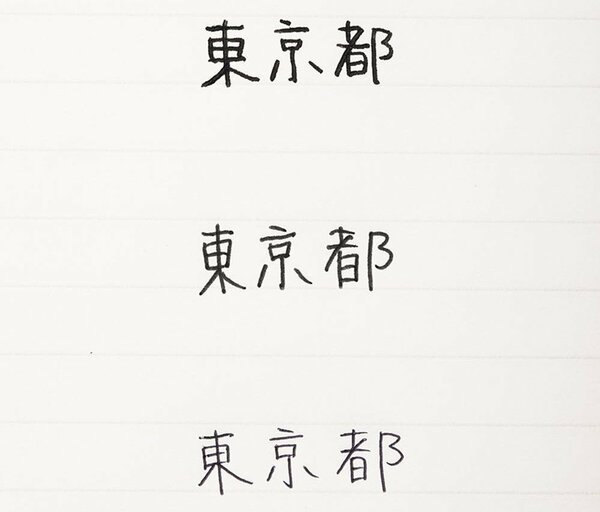 東京都
東京都
東京都